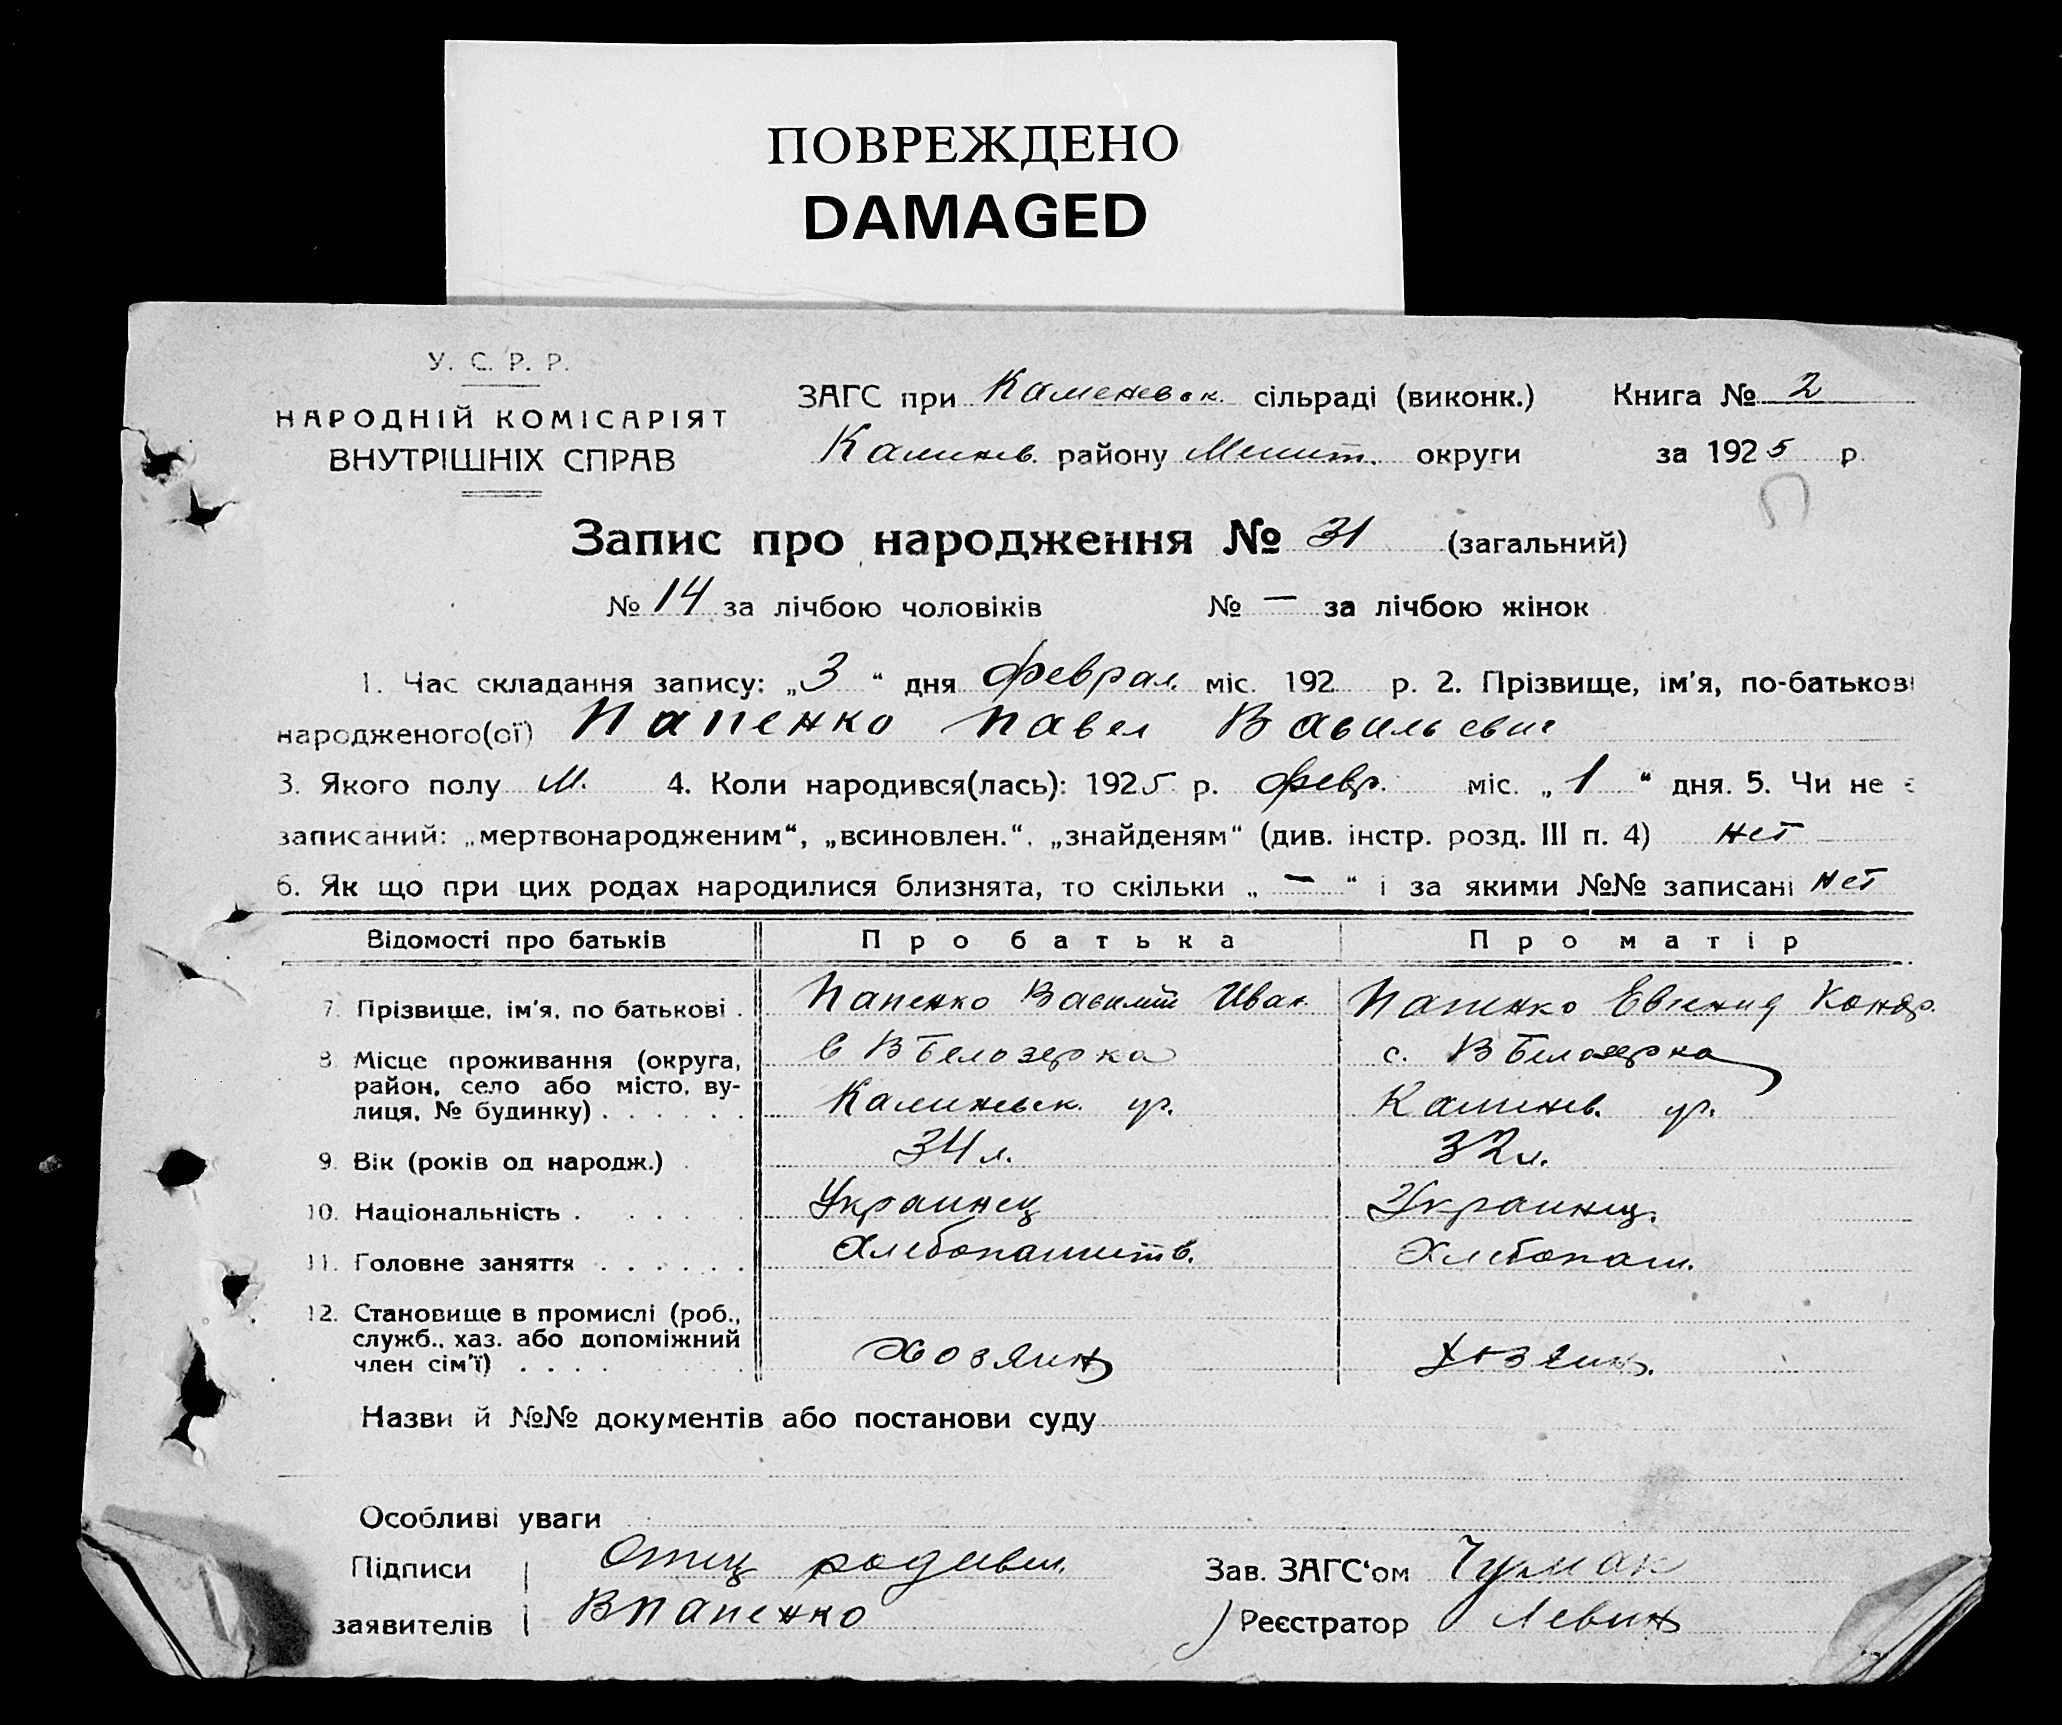 ПОВРЕЖДЕНО
DAMAGED
У. С. Р. Р.
НАРОДНІЙ КОМІСАРІЯТ
ВНУТРІШНІХ СПРАВ
ЗАГС при Каменевск. сільраді (виконк.) Книга № 2
Калинев. району Мелит. округи за 1925 р.
Запис про народження № 31 (загальний)
№ 14 за лічбою чоловіків № — за лічбою жінок
1. Час складання запису: „3“ дня феврал. міс. 192 р. 2. Прізвище, ім'я, по-батькові
народженого(ої) Папенко Павел Васильевич
3. Якого полу М. 4. Коли народився(лась): 1925 р. февр. міс. „1“ дня. 5. Чи не є
записаний: „мертвонародженим“, „всиновлен.“, „знайденям“ (див. інстр. розд. III п. 4) нет
6. Як що при цих родах народилися близнята, то скільки „—“ і за якими №№ записані нет
Відомості про батьків Про батька Про матір
7. Прізвище, ім'я, по батькові . Папенко Василий Иван. Папенко Евгения Кондр.
8. Місце проживання (округа, с В Белозерка с. В Белозерка
район, село або місто, ву-
лиця, № будинку) . . . . . . Калиневск. ур. Калинев. ур.
9. Вік (років од народж.) . 34 л. 32 л.
10. Національність . . . . . Украинец Украинц.
11. Головне заняття . . . . . . Хлебопашеств. Хлебопаш.
12. Становище в промислі (роб.,
служб., хаз. або допоміжний
член сім'ї) . . . . . Хозяин хозяин.
Назви й №№ документів або постанови суду
Особливі уваги
Підписи Отец родивш. Зав. ЗАГС'ом Чумак
заявителів ВПапенко Реєстратор Левин